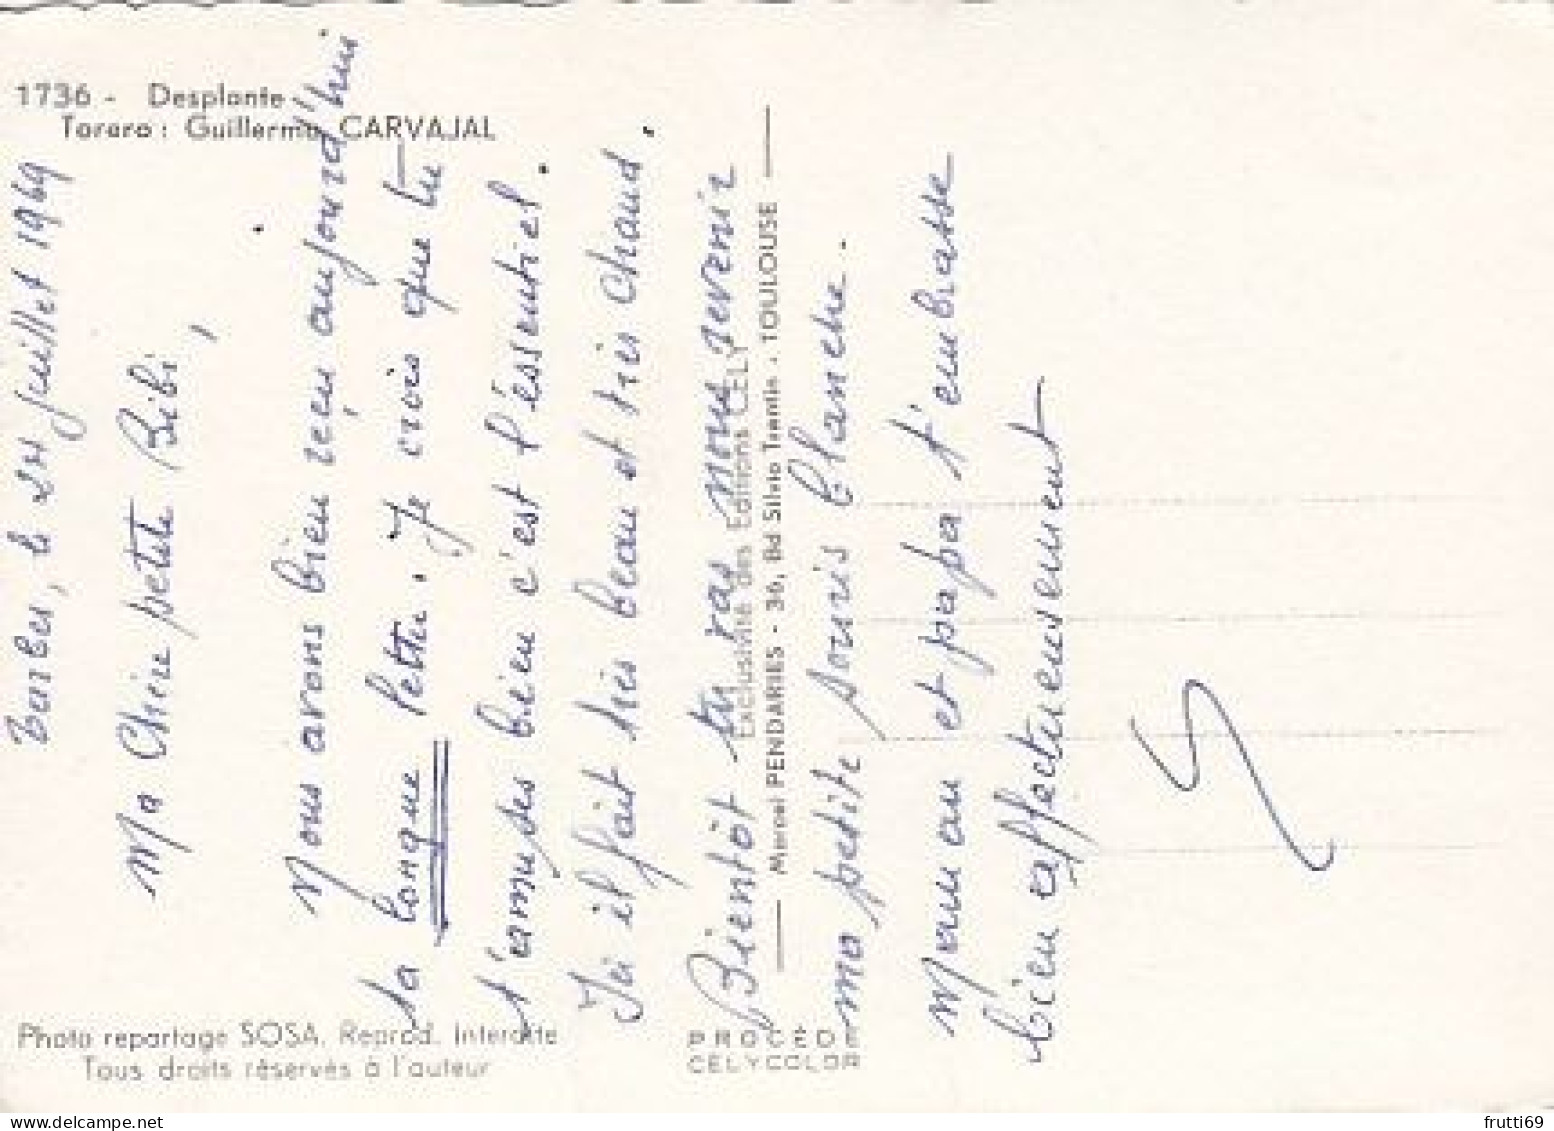 1736 - Desplante
Torero : Guillermo CARVAJAL
Tarbes, le 24 juillet 1969
Ma Chère petite Bibi,
Nous avons bien reçu aujourd'hui
ta longue lettre. Je crois que tu
t'amuses bien c'est l'essentiel.
Ici il fait très beau et très chaud.
Bientôt tu vas nous revenir
ma petite souris blanche.
Maman et papa t'embrasse
bien affectueusement
Exclusivité des Editions CELY
Marcel PENDARIES - 36, Bd Silvio Trentin - TOULOUSE
Photo reportage SOSA. Reprod. Interdite
Tous droits réservés à l'auteur
PROCÉDÉ
CELYCOLOR
www.delcampe.net
frutti69